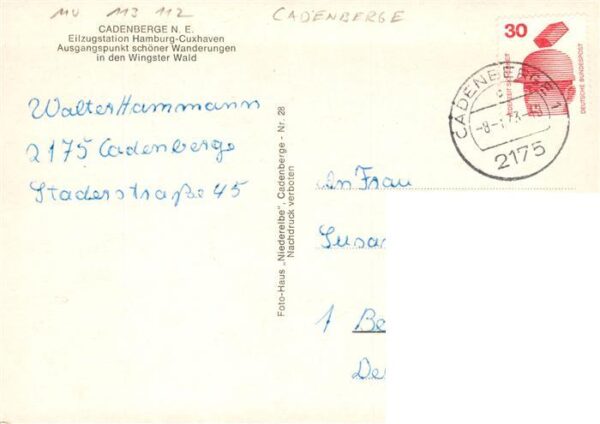 MU 113 112
CADENBERGE
CADENBERGE N. E.
Eilzugstation Hamburg-Cuxhaven
Ausgangspunkt schöner Wanderungen
in den Wingster Wald
Walter Hammann
2175 Cadenberge
Staderstraße 45
Foto-Haus „Niederelbe“, Cadenberge - Nr. 28
Nachdruck verboten
30
DEUTSCHE BUNDESPOST
CADENBERGE 1
2175
An Frau
Susa
1 Be
De